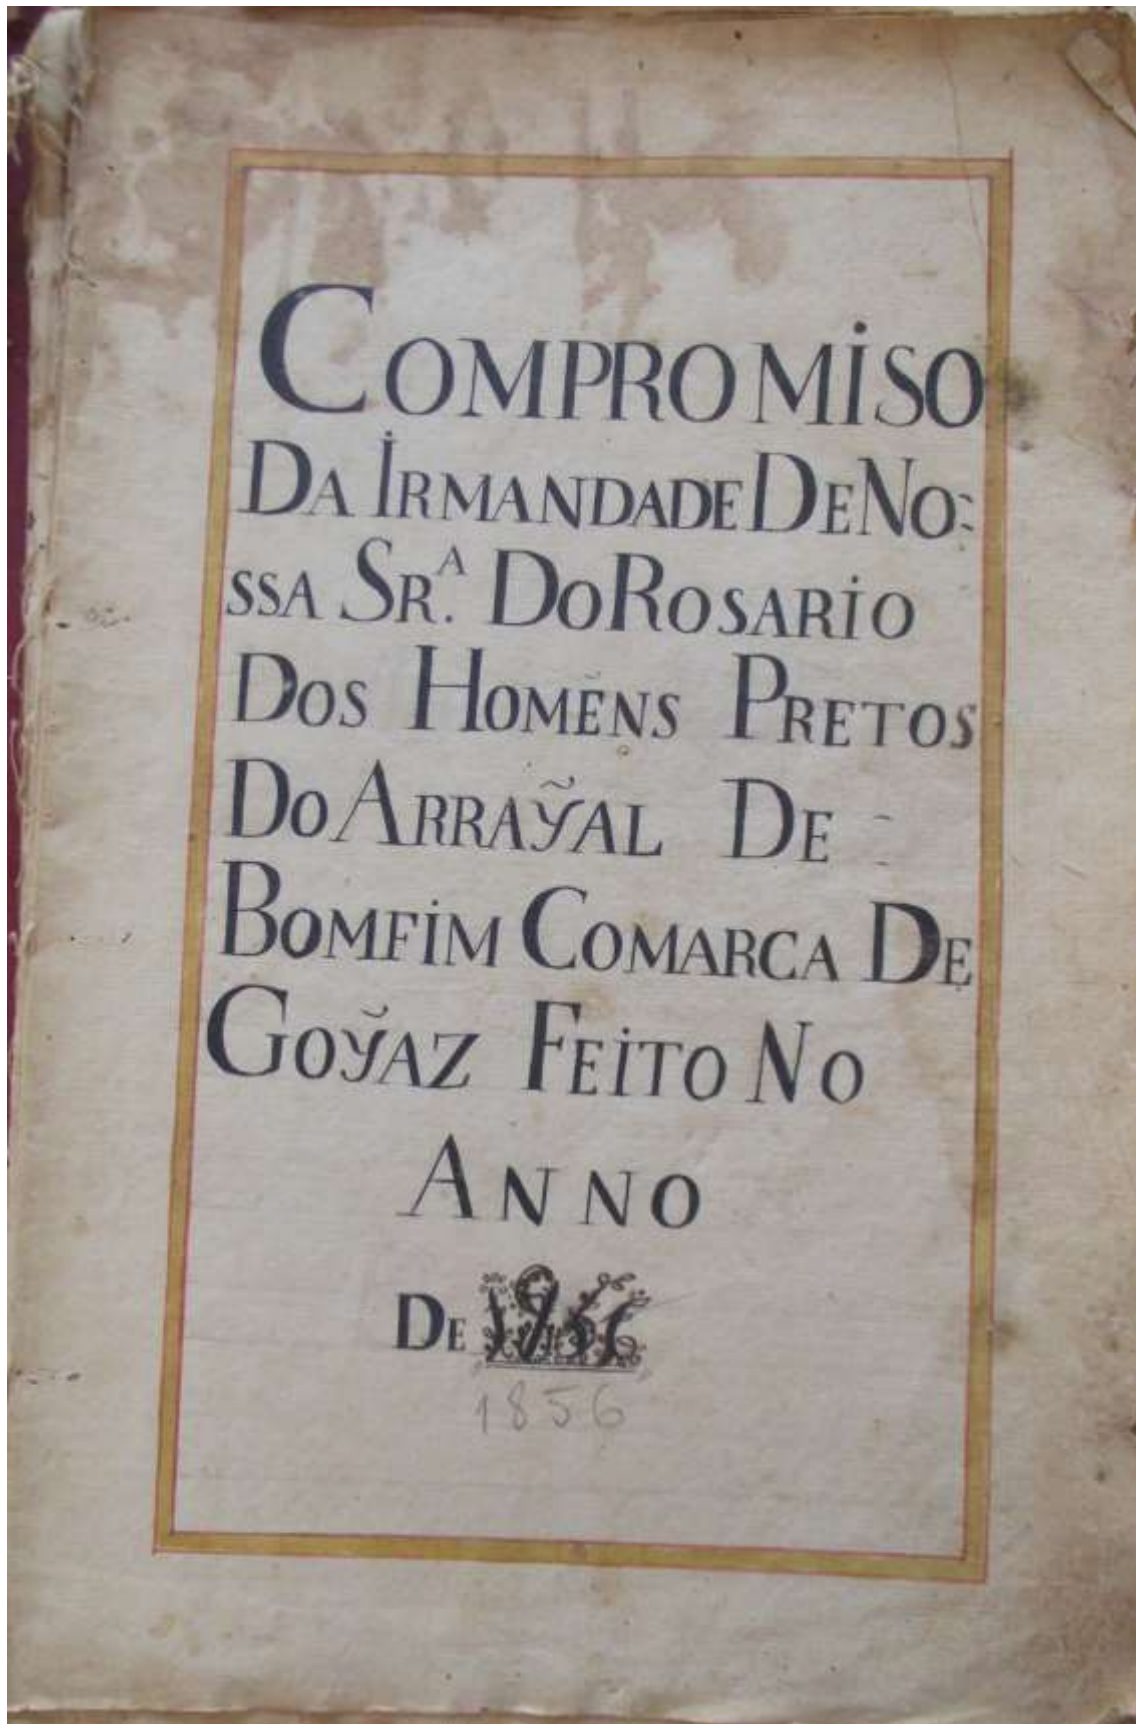 COMPROMiSO
DA İRMANDADE DE NO:
SSA SR.ᴬ DO ROSARiO
DOS HOMẼNS PRETOS
DO ARRAỹAL DE -
BOMFiM COMARCA DE
GOỹAZ FEiTO NO
ANNO
DE
1856